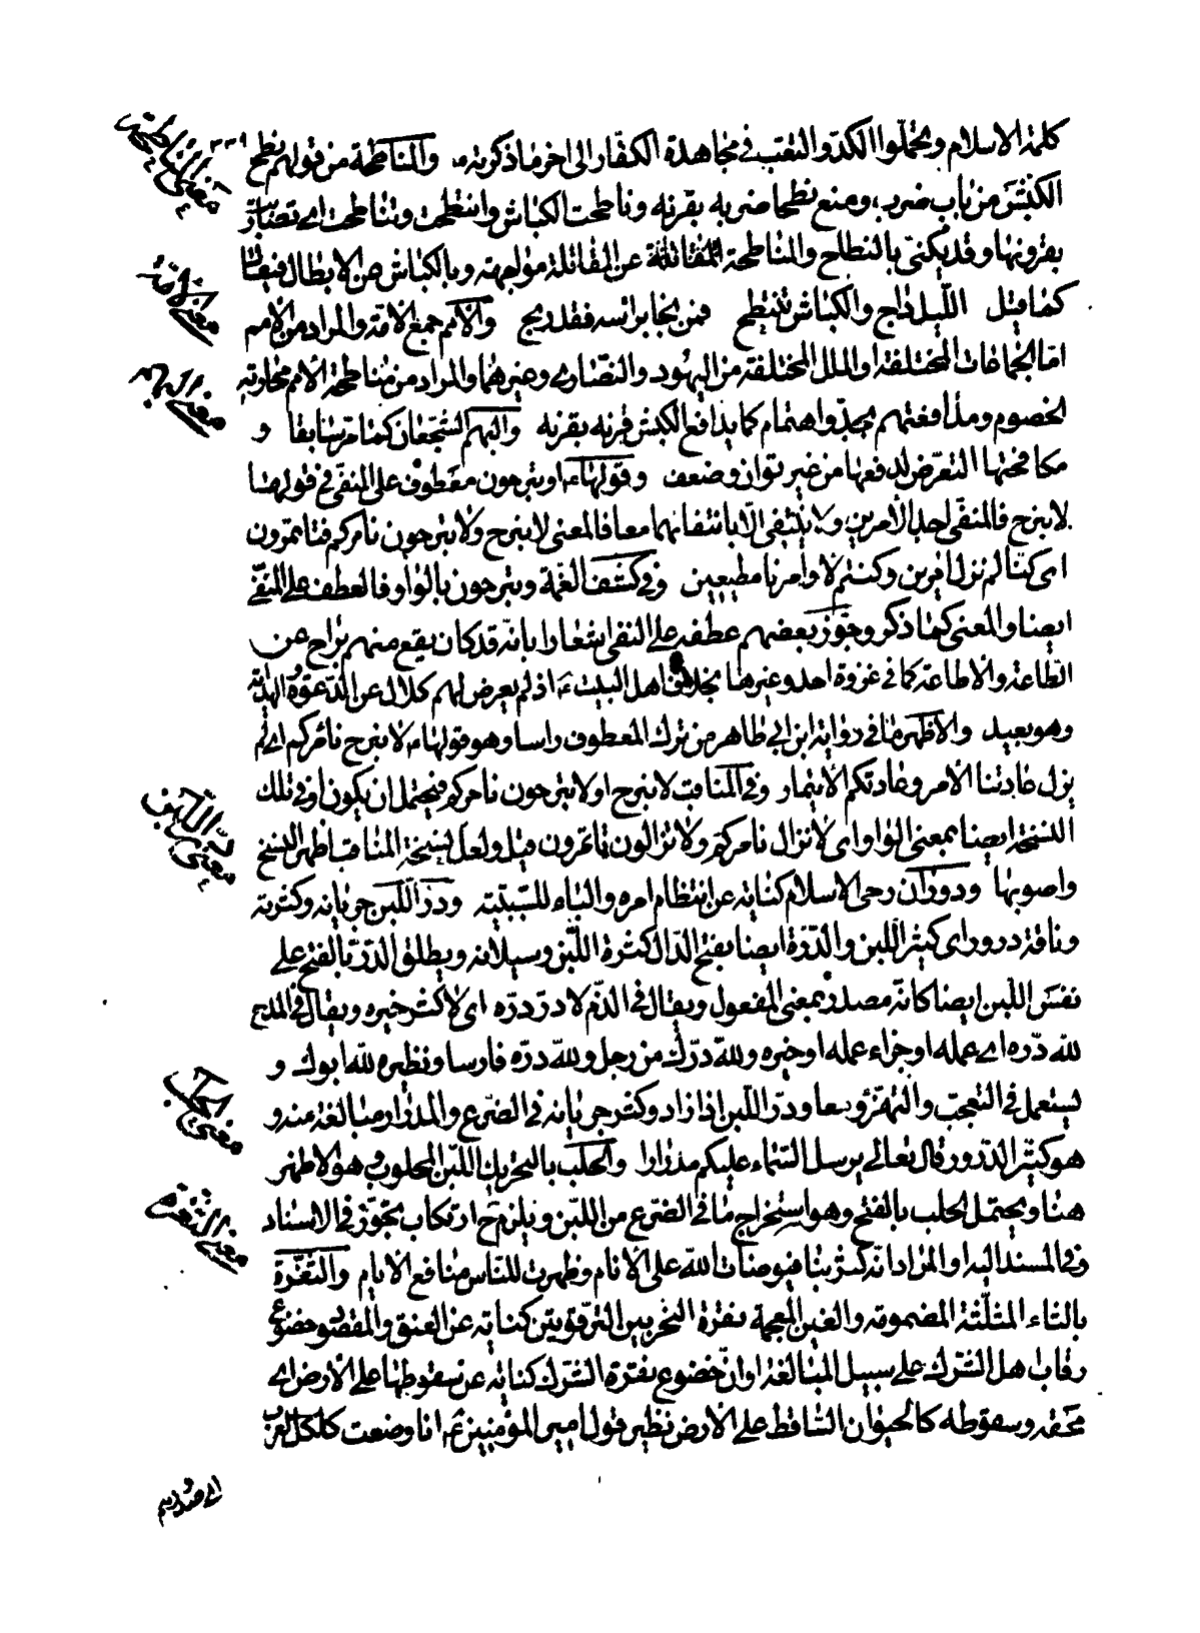 كلمة الاسلام وتحملوا الكدّ والتعب فى مجاهدة الكفّار الى اخر ما ذكرته والمناطحة من قولهم نطح
٣٣١
معنى المناطحة
الكبش من باب ضرب ومنع نطحا ضربه بقرنه وناطحت الكباش وانتطحت وتناطحت اى تضاربت
بقرونها وقد يكنى بالنطاح والمناطحة عن المقاتلة مواجهة وبالكباش عن الابطال فيقال
معنى الامة
كما قيل الليل داج والكباش تنتطح فمن نجا براسه فقد ربح والامم جمع الامّة والمراد من الامم
امّا الجماعات المختلفة او الملل المختلفة من اليهود والنصارى وغيرهما والمراد من مناطحة الامم محاربة
معنى البهم
الخصوم ومدافعتهم بجدّ واهتمام كما يدافع الكبش قرنه بقرنه والبهم الشجعان كما مرّ سابقا و
مكافحتها التعرّض لدفعها من غير توان وضعف وقولها ء او تبرحون معطوف على المنفى فى قولها
لا نبرح فالمنفى احد الامرين ولا ينتفى الّا بانتفائهما معا فالمعنى لا نبرح ولا تبرحون نامركم فتاتمرون
اى كنّا لم نزل امرين وكنتم لاوامرنا مطيعين وفى كشف الغمة وتبرحون بالواو فالعطف على النفى
ايضا والمعنى كما ذكر وجوّز بعضهم عطفه على النفى اشعارا بانّه قد كان يقع منهم براح عن
الطاعة والاطاعة كما فى غزوة احد وغيرها بخلاف اهل البيت ء اذ لم يعرض لهم كلال عن الدعوة الهداية
وهو بعيد والاظهر ما فى رواية ابن ابى طاهر من ترك المعطوف راسا وهو قولها ء لا نبرح نامركم اى لم
يزل عادتنا الامر وعادتكم الايتمار وفى المناقب لا نبرح او لا تبرحون نامركم فيحتمل ان يكون او فى تلك
معنى درّ اللبن
النسخة ايضا بمعنى الواو اى لا نزال نامركم ولا تزالون تاتمرون قيل ولعل نسخة المناقب اظهر النسخ
واصوبها ودوران رحى الاسلام كناية عن انتظام امره والباء للسببيّة ودرّ اللبن جريانه وكثرته
وناقة درور اى كثير اللبن والدّرّة ايضا بفتح الدال كثرة اللبن وسيلانه ويطلق الدرّ بالفتح على
نفس اللبن ايضا كانّه مصدر بمعنى المفعول ويقال فى الذّم لا درّ درّه اى لا كثر خيره ويقال فى المدح
للّه درّه اى عمله او جزاء عمله او خيره وللّه درّك من رجل وللّه درّه فارسا ونظيره للّه ابوك و
معنى الحلب
يستعمل فى التعجب والتهزّؤ معا ودرّ اللبن اذا زاد وكثر جريانه فى الضرع والمدرار مبالغة منه و
هو كثير الدرور قال تعالى يرسل السّماء عليكم مدرارا والحلب بالتحريك اللبن المحلوب وهو الاظهر
معنى الثغرة
هنا ويحتمل الحلب بالفتح وهو استخراج ما فى الضرع من اللبن ويلزم ح ارتكاب تجوّز فى الاسناد
وفى المسند اليه والمراد انه كثر بنا فيوضات اللّه على الانام وظهرت للنّاس منافع الايام والثغرة
بالثاء المثلّثة المضمومة والغين المعجمة نقرة النحر بين الترقوتين كناية عن العنق والمقصود خضوع
رقاب اهل الشرك على سبيل المبالغة او انّ خضوع نقرة الشرك كناية عن سقوطها على الارض اى
محقه وسقوطه كالحيوان الساقط على الارض نظير قول امير المؤمنين ء انا وضعت كلكل العرب
اى صدورهم